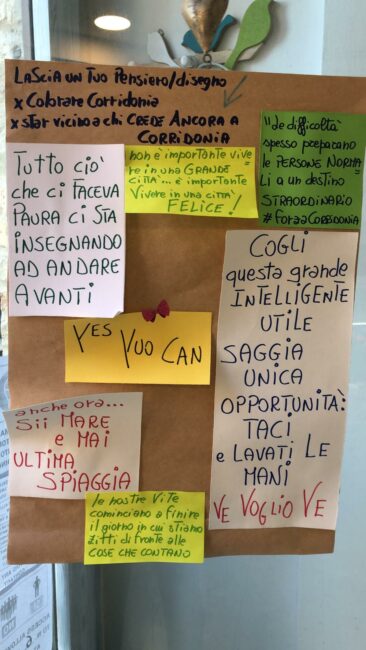 LASCIA UN TUO PENSIERO/disegno
x Colorare Corridonia
x star vicino a chi CREDE ANCORA A
CORRIDONIA
TUTTO CIÒ
CHE CI FACEVA
PAURA CI STA
INSEGNANDO
AD ANDARE
AVANTI
non è importante vive
re in una GRANDE
CITTÀ... è importante
Vivere in una CITTÀ
FELICE!
"Le difficoltà
spesso preparano
le PERSONE NORMA
LI a un destino
STRAORDINARIO
#forzaCORRIDONIA
YES YUO CAN
COGLI
questa grande
INTELLIGENTE
UTILE
SAGGIA
UNICA
OPPORTUNITÀ:
TACI
e LAVATI LE
MANI
VE VOGLIO VE
anche ora...
SII MARE
e MAI
ULTIMA
SPIAGGIA
le nostre vite
cominciano a finire
il giorno in cui stiamo
zitti di fronte alle
COSE CHE CONTANO